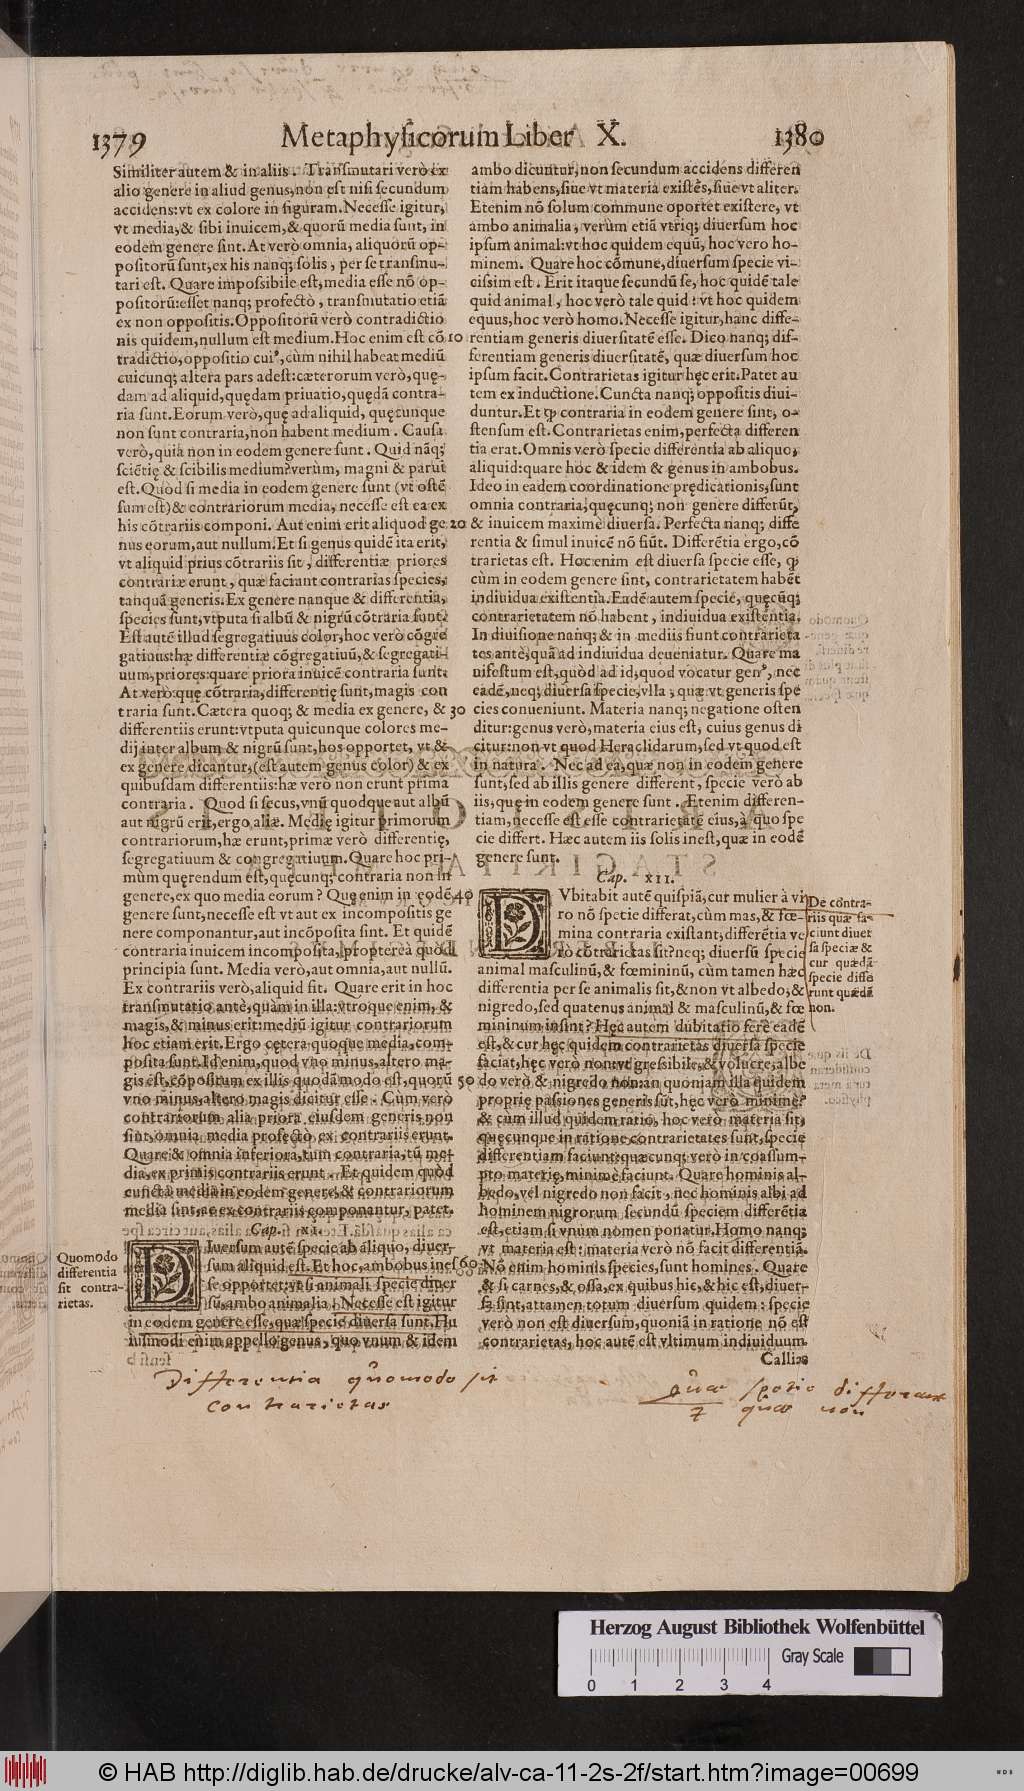 1379
Metaphysicorum Liber X.
1380
Similiter autem & in aliis. Transmutari verò ex
alio genere in aliud genus, non est nisi secundum
accidens: vt ex colore in figuram. Necesse igitur,
vt media, & sibi inuicem, & quorũ media sunt, in
eodem genere sint. At verò omnia, aliquorũ op-
positorũ sunt, ex his nanq; solis, per se transmu-
tari est. Quare impossibile est, media esse nõ op-
positorũ: esset nanq; profectò, transmutatio etiã
ex non oppositis. Oppositorũ verò contradictio
nis quidem, nullum est medium. Hoc enim est cõ
tradictio, oppositio cui⁹, cùm nihil habeat mediũ
cuicunq; altera pars adest: cæterorum verò, quę-
dam ad aliquid, quędam priuatio, quędã contra-
ria sunt. Eorum verò, quę ad aliquid, quęcunque
non sunt contraria, non habent medium. Causa
verò, quia non in eodem genere sunt. Quid nãq;
sciẽtię & scibilis medium? verùm, magni & parui
est. Quòd si media in eodem genere sunt (vt ostẽ
sum est) & contrariorum media, necesse est ea ex
his cõtrariis componi. Aut enim erit aliquod ge
nus eorum, aut nullum. Et si genus quidẽ ita erit,
vt aliquid prius cõtrariis sit, differentiæ priores
contrariæ erunt, quæ faciant contrarias species,
tanquã generis. Ex genere nanque & differentia,
species sunt, vtputa si albũ & nigrũ cõtraria sunt.
Est autẽ illud segregatiuus color, hoc verò cõgre
gatiuus: hæ differentiæ cõgregatiuũ, & segregati-
uum, priores: quare priora inuicẽ contraria sunt.
At verò quę cõtraria, differentię sunt, magis con
traria sunt. Cætera quoq; & media ex genere, &
differentiis erunt: vtputa quicunque colores me-
dij inter album & nigrũ sunt, hos opportet, vt &
ex genere dicantur, (est autem genus color) & ex
quibusdam differentiis: hæ verò non erunt prima
contraria. Quod si secus, vnũ quodque aut albũ
aut nigrũ erit, ergo aliæ. Medię igitur primorum
contrariorum, hæ erunt, primæ verò differentię,
segregatiuum & congregatiuum. Quare hoc pri-
mùm quęrendum est, quęcunq; contraria non in
genere, ex quo media eorum? Quę enim in eodẽ
genere sunt, necesse est vt aut ex incompositis ge
nere componantur, aut incõposita sint. Et quidẽ
contraria inuicem incomposita, propterea quòd
principia sunt. Media verò, aut omnia, aut nullũ.
Ex contrariis verò, aliquid fit. Quare erit in hoc
transmutatio antè, quàm in illa: vtroque enim, &
magis, & minus erit: mediũ igitur contrariorum
hoc etiam erit. Ergo cętera quoque media, com-
posita sunt. Id enim, quod vno minus, altero ma-
gis est, cõpositum ex illis quodãmodo est, quorũ
vno minus, altero magis dicitur esse. Cùm verò
contrariorum alia priora eiusdem generis non
sint, omnia media profectò ex contrariis erunt.
Quare & omnia inferiora, tum contraria, tũ me-
dia, ex primis contrariis erunt. Et quidem quòd
cuncta media in eodem genere, & contrariorum
media sint, ac ex contrariis componantur, patet.
Cap. XI.
DIuersum autẽ specie ab aliquo, diuer-
sum aliquid est. Et hoc, ambobus ines
se opportet: vt si animali specie diuer
sũ, ambo animalia. Necesse est igitur
in eodem genere esse, quæ specie diuersa sunt. Hu
iusmodi enim appello genus, quo vnum & idem
Quomodo
differentia
sit contra-
rietas.
10
20
30
40
50
60
ambo dicuntur, non secundum accidens differen
tiam habens, siue vt materia existẽs, siue vt aliter.
Etenim nõ solum commune oportet existere, vt
ambo animalia, verùm etiã vtriq; diuersum hoc
ipsum animal: vt hoc quidem equũ, hoc vero ho-
minem. Quare hoc cõmune, diuersum specie vi-
cissim est. Erit itaque secundũ se, hoc quidẽ tale
quid animal, hoc verò tale quid: vt hoc quidem
equus, hoc verò homo. Necesse igitur, hanc diffe-
rentiam generis diuersitatẽ esse. Dico nanq; dif-
ferentiam generis diuersitatẽ, quæ diuersum hoc
ipsum facit. Contrarietas igitur hęc erit. Patet au
tem ex inductione. Cuncta nanq; oppositis diui-
duntur. Et ꝙ contraria in eodem genere sint, o-
stensum est. Contrarietas enim, perfecta differen
tia erat. Omnis verò specie differentia ab aliquo,
aliquid: quare hoc & idem & genus in ambobus.
Ideo in eadem coordinatione prędicationis, sunt
omnia contraria, quęcunq; non genere differũt,
& inuicem maximè diuersa. Perfecta nanq; diffe
rentia & simul inuicẽ nõ fiũt. Differẽtia ergo, cõ
trarietas est. Hoc enim est diuersa specie esse, ꝙ
cùm in eodem genere sint, contrarietatem habẽt
indiuidua existentia. Eadẽ autem specie, quęcũq;
contrarietatem nõ habent, indiuidua existentia.
In diuisione nanq; & in mediis fiunt contrarieta
tes antè, quã ad indiuidua deueniatur. Quare ma
nifestum est, quòd ad id, quod vocatur gen⁹, nec
eadẽ, neq; diuersa specie, vlla, quæ vt generis spe
cies conueniunt. Materia nanq; negatione osten
ditur: genus verò, materia eius est, cuius genus di
citur: non vt quod Heraclidarum, sed vt quod est
in natura. Nec ad ea, quæ non in eodem genere
sunt, sed ab illis genere different, specie verò ab
iis, quę in eodem genere sunt. Etenim differen-
tiam, necesse est esse contrarietatẽ eius, à quo spe
cie differt. Hæc autem iis solis inest, quæ in eodẽ
genere sunt.
Cap. XII.
DVbitabit autẽ quispiã, cur mulier à vi
ro nõ spetie differat, cùm mas, & fœ-
mina contraria existant, differẽtia ve
rò cõtrarietas sit? neq; diuersũ specie
animal masculinũ, & fœmininũ, cùm tamen hæc
differentia per se animalis sit, & non vt albedo, &
nigredo, sed quatenus animal & masculinũ, & fœ
mininum insint? Hęc autem dubitatio ferè eadẽ
est, & cur hęc quidem contrarietas diuersa specie
faciat, hęc verò non: vt gressibile, & volucre, albe
do verò & nigredo non: an quoniam illa quidem
proprię passiones generis sũt, hęc verò minimè?
& cùm illud quidem ratio, hoc verò materia sit,
quęcunque in ratione contrarietates sunt, specie
differentiam faciunt: quæcunq; verò in coassum-
pto materię, minimè faciunt. Quare hominis al-
bedo, vel nigredo non facit, nec hominis albi ad
hominem nigrorum secundũ speciem differẽtia
est, etiam si vnum nomen ponatur. Homo nanq;
vt materia est: materia verò nõ facit differentiã.
Nõ enim hominis species, sunt homines. Quare
& si carnes, & ossa, ex quibus hic, & hic est, diuer-
sa sint, attamen totum diuersum quidem: specie
verò non est diuersum, quoniã in ratione nõ est
contrarietas, hoc autẽ est vltimum indiuiduum.
Callias
De cõtra-
riis quæ fa-
ciunt diuer
sa speciæ &
cur quædã
specie diffe
runt quædã
non.
Differentia quomodo sit
contrarietas
Quæ specie differant
& quæ non
Herzog August Bibliothek Wolfenbüttel
Gray Scale
0 1 2 3 4
© HAB http://diglib.hab.de/drucke/alv-ca-11-2s-2f/start.htm?image=00699